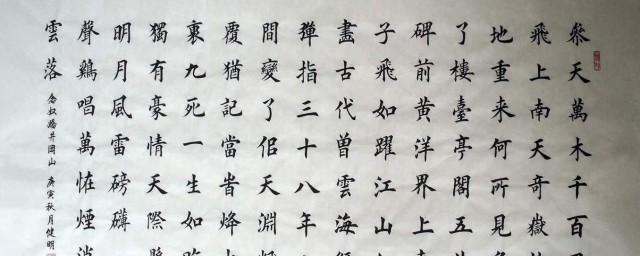 叅天萬木千百
飛上南天奇嶽
地重来何所見
了樓臺亭閣五
碑前黃洋界上
子飛如躍江山
畫古代曾雲海
彈指三十八年
間變了佀天淵
覆猶記當旹烽
裏九死一生如
獨有豪情天際
明月風雷磅礴
聲鷄唱萬恠煙消
雲落
念奴嬌井岡山 庚寅秋月健明